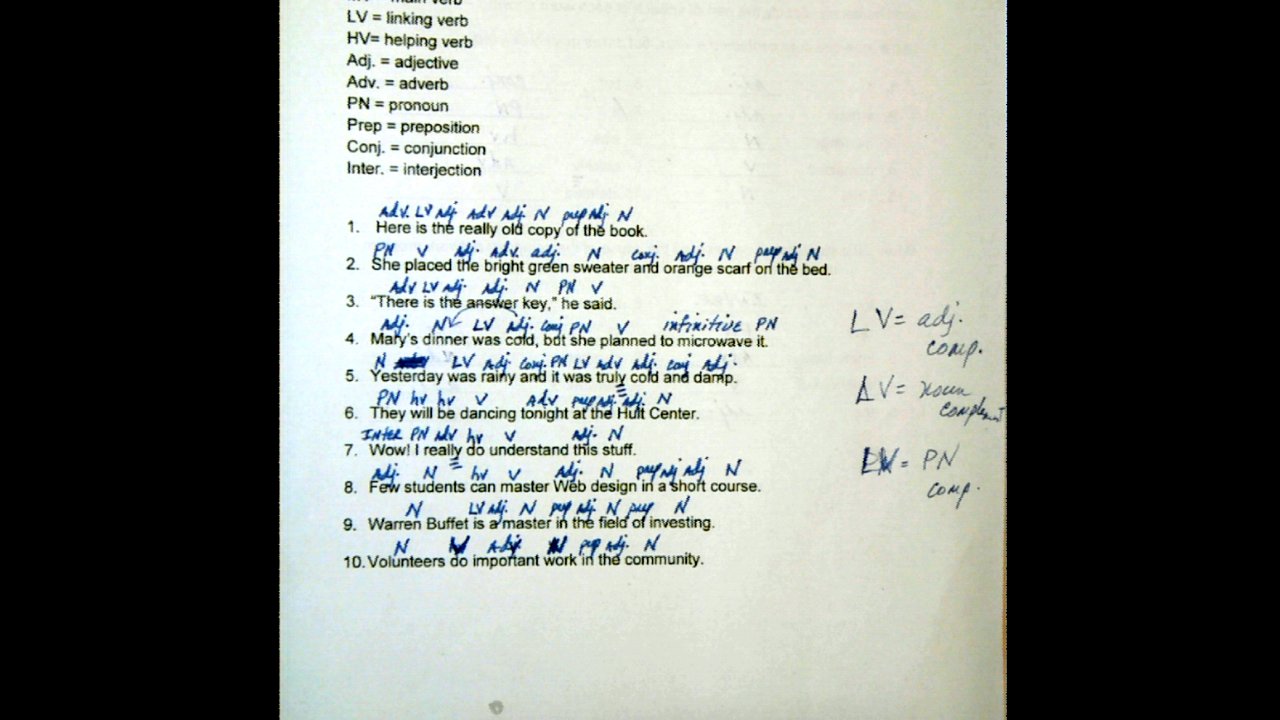 LV = linking verb
HV= helping verb
Adj. = adjective
Adv. = adverb
PN = pronoun
Prep = preposition
Conj. = conjunction
Inter. = interjection
Adv. LV Adj Adv Adj. N prep Adj N
1. Here is the really old copy of the book.
PN V Adj. Adv. adj. N conj. Adj. N prep Adj N
2. She placed the bright green sweater and orange scarf on the bed.
Adv LV Adj. Adj. N PN V
3. “There is the answer key,” he said.
Adj. N LV Adj. conj PN V infinitive PN
4. Mary's dinner was cold, but she planned to microwave it.
LV= adj.
comp.
N LV Adj conj. PN LV Adv Adj. conj Adj.
5. Yesterday was rainy and it was truly cold and damp.
LV = noun
complement
PN hv hv V Adv prep Adj. adj. N
6. They will be dancing tonight at the Hult Center.
Inter PN adv hv V Adj. N
7. Wow! I really do understand this stuff.
= PN
comp.
Adj. N hv V Adj. N prep Adj N
8. Few students can master Web design in a short course.
N LV Adj. N prep Adj. N prep N
9. Warren Buffet is a master in the field of investing.
N Adj prep Adj. N
10. Volunteers do important work in the community.